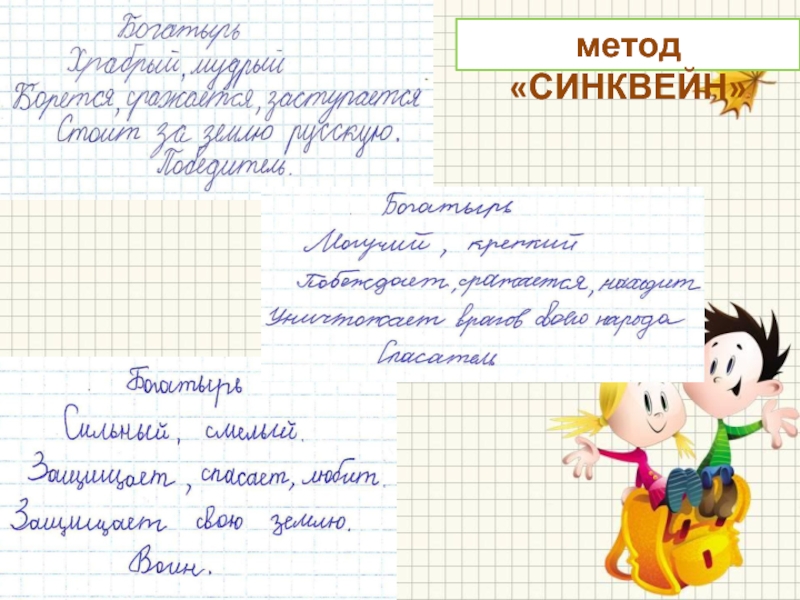 Богатырь
Храбрый, мудрый
Борется, сражается, заступается
Стоит за землю русскую.
Победитель.
метод
«СИНКВЕЙН»
Богатырь
Могучий, крепкий
Побеждает, сражается, находит
Уничтожает врагов свого народа
Спасатель
Богатырь
Сильный, смелый.
Защищает, спасает, любит.
Защищает свою землю.
Воин.